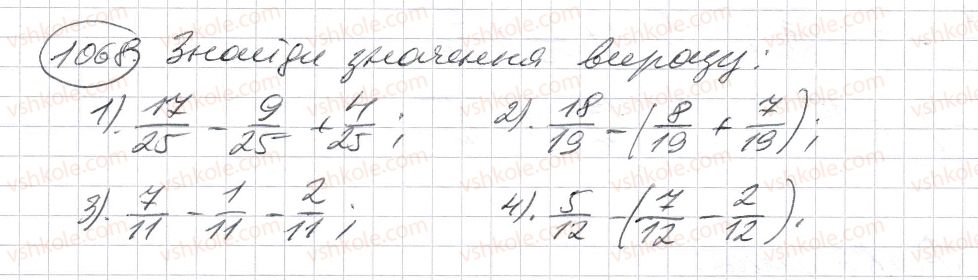 1068. Знайди значення виразу:
1). 17/25 - 9/25 + 4/25; 2). 18/19 - (8/19 + 7/19);
3). 7/11 - 1/11 - 2/11; 4). 5/12 - (7/12 - 2/12).
vshkole.com